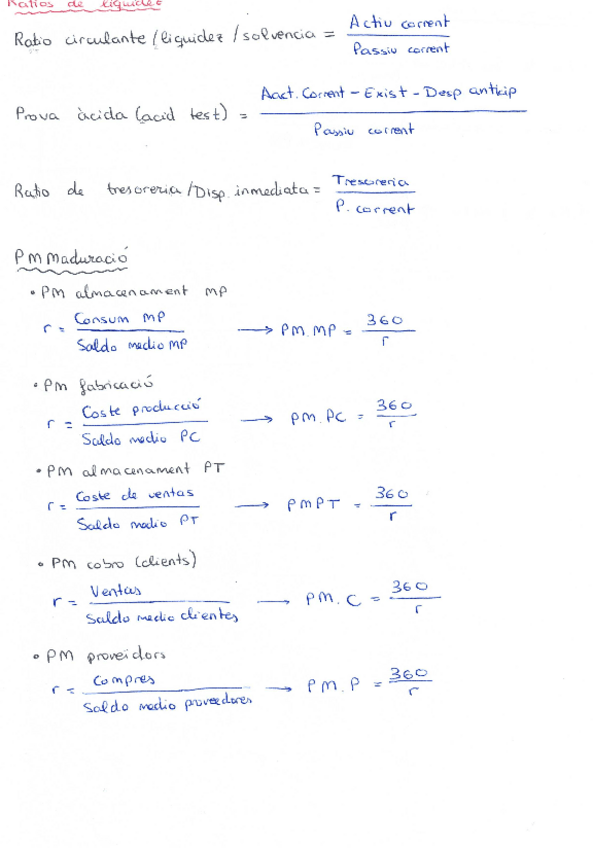 Ratios de liquidez
Ratio circulante/liquidez/solvencia = Actiu corrent / Passiu corrent
Prova àcida (acid test) = Aact. Corrent - Exist - Desp anticip / Passiu corrent
Ratio de tresoreria/Disp. inmediata = Tresoreria / P. corrent
PM Maduració
• PM almacenament MP
r = Consum MP / Saldo medio MP → PM. MP = 360 / r
• PM fabricació
r = Coste producció / Saldo medio PC → PM. PC = 360 / r
• PM almacenament PT
r = Coste de ventas / Saldo medio PT → PMPT = 360 / r
• PM cobro (clients)
r = Ventas / Saldo medio clientes → PM. C = 360 / r
• PM proveidors
r = Compres / Saldo medio proveedores → PM. P = 360 / r